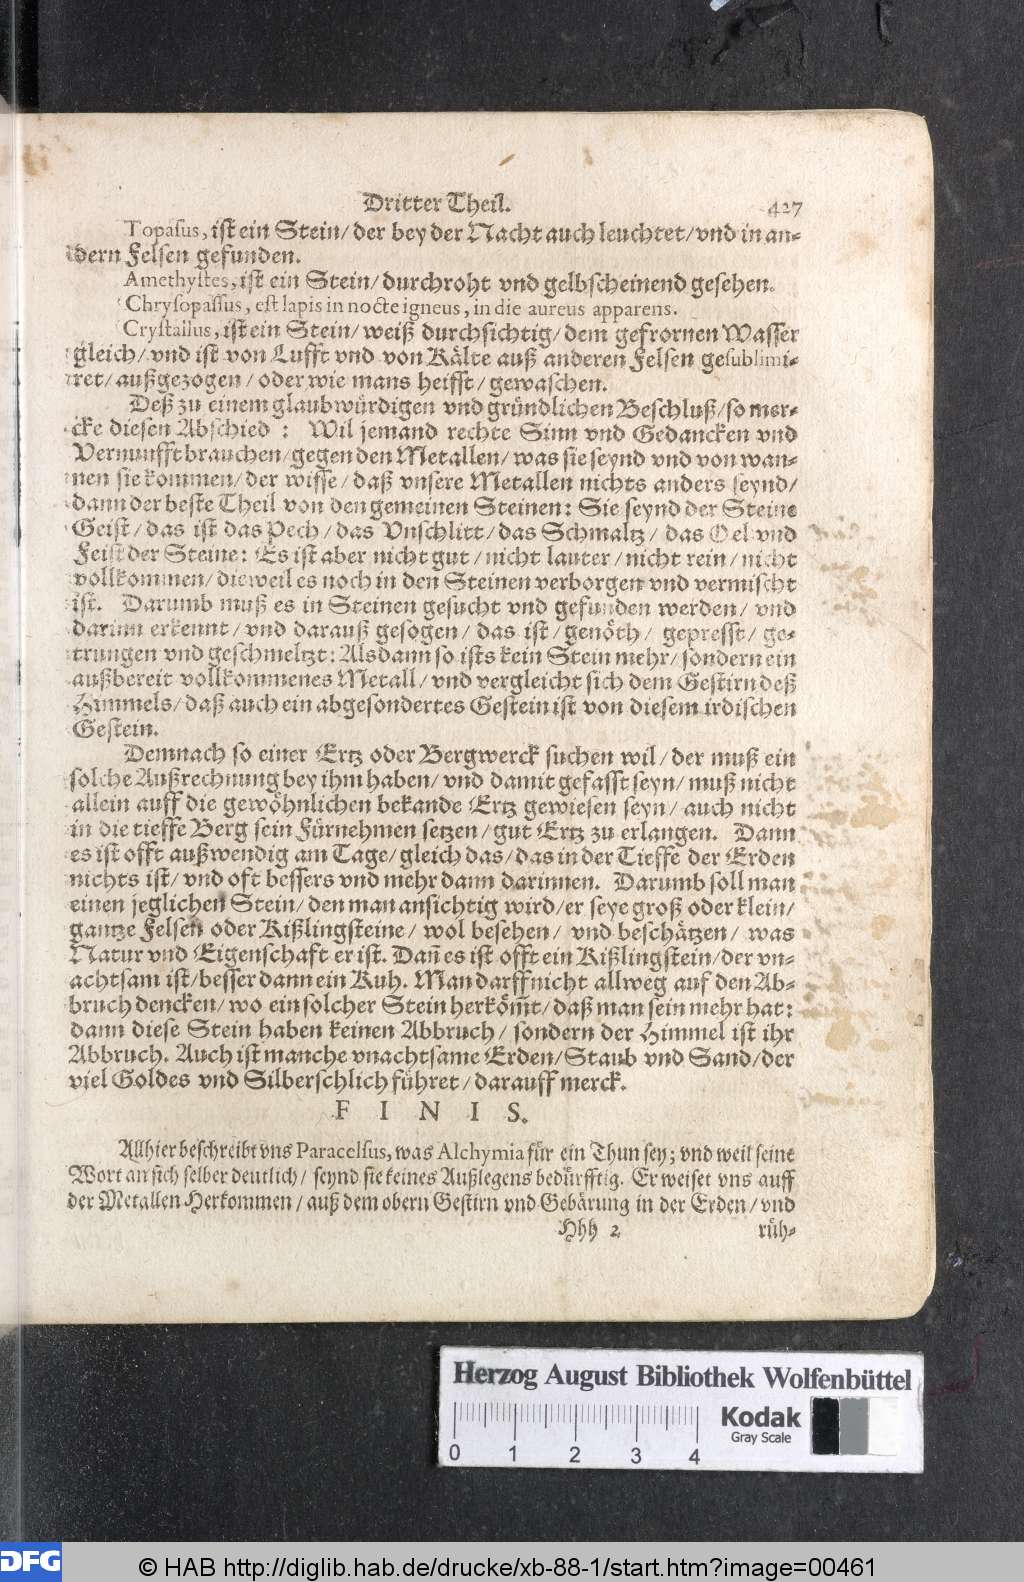 Dritter Theil. 427
Topasus, ist ein Stein/ der bey der Nacht auch leuchtet/ vnd in an-
dern Felsen gefunden.
Amethystes, ist ein Stein/ durchroht vnd gelbscheinend gesehen.
Chrysopassus, est lapis in nocte igneus, in die aureus apparens.
Crystallus, ist ein Stein/ weiß durchsichtig/ dem gefrornen Wasser
gleich/ vnd ist von Lufft vnd von Kälte auß anderen Felsen gesublimi-
ret/ außgezogen/ oder wie mans heisst/ gewaschen.
Deß zu einem glaubwürdigen vnd gründlichen Beschluß/ so mer-
cke diesen Abschied: Wil jemand rechte Sinn vnd Gedancken vnd
Vernunfft brauchen/ gegen den Metallen/ was sie seynd vnd von wan-
nen sie kommen/ der wisse/ daß vnsere Metallen nichts anders seynd/
dann der beste Theil von den gemeinen Steinen: Sie seynd der Steine
Geist/ das ist das Pech/ das Vnschlitt/ das Schmaltz/ das Oel vnd
Feist der Steine: Es ist aber nicht gut/ nicht lauter/ nicht rein/ nicht
vollkommen/ dieweil es noch in den Steinen verborgen vnd vermischt
ist. Darumb muß es in Steinen gesucht vnd gefunden werden/ vnd
darinn erkennt/ vnd darauß gesogen/ das ist/ genöth/ gepresst/ ge-
trungen vnd geschmeltzt: Alsdann so ists kein Stein mehr/ sondern ein
außbereit vollkommenes Metall/ vnd vergleicht sich dem Gestirn deß
Himmels/ daß auch ein abgesondertes Gestein ist von diesem irdischen
Gestein.
Demnach so einer Ertz oder Bergwerck suchen wil/ der muß ein
solche Außrechnung bey ihm haben/ vnd damit gefasst seyn/ muß nicht
allein auff die gewöhnlichen bekande Ertz gewiesen seyn/ auch nicht
in die tieffe Berg sein Fürnehmen setzen/ gut Ertz zu erlangen. Dann
es ist offt außwendig am Tage/ gleich das/ das in der Tieffe der Erden
nichts ist/ vnd oft bessers vnd mehr dann darinnen. Darumb soll man
einen jeglichen Stein/ den man ansichtig wird/ er seye groß oder klein/
gantze Felsen oder Kißlingsteine/ wol besehen/ vnd beschätzen/ was
Natur vnd Eigenschaft er ist. Dañ es ist offt ein Kißlingstein/ der vn-
achtsam ist/ besser dann ein Kuh. Man darff nicht allweg auf den Ab-
bruch dencken/ wo ein solcher Stein herköm̃t/ daß man sein mehr hat:
dann diese Stein haben keinen Abbruch/ sondern der Himmel ist ihr
Abbruch. Auch ist manche vnachtsame Erden/ Staub vnd Sand/ der
viel Goldes vnd Silberschlich führet/ darauff merck.
F I N I S.
Allhier beschreibt vns Paracelsus, was Alchymia für ein Thun sey; vnd weil seine
Wort an sich selber deutlich/ seynd sie keines Außlegens bedürfftig. Er weiset vns auff
der Metallen Herkommen/ auß dem obern Gestirn vnd Gebärung in der Erden/ vnd
Hhh 2 rüh-
Herzog August Bibliothek Wolfenbüttel
Kodak
Gray Scale
0 1 2 3 4
DFG
© HAB http://diglib.hab.de/drucke/xb-88-1/start.htm?image=00461